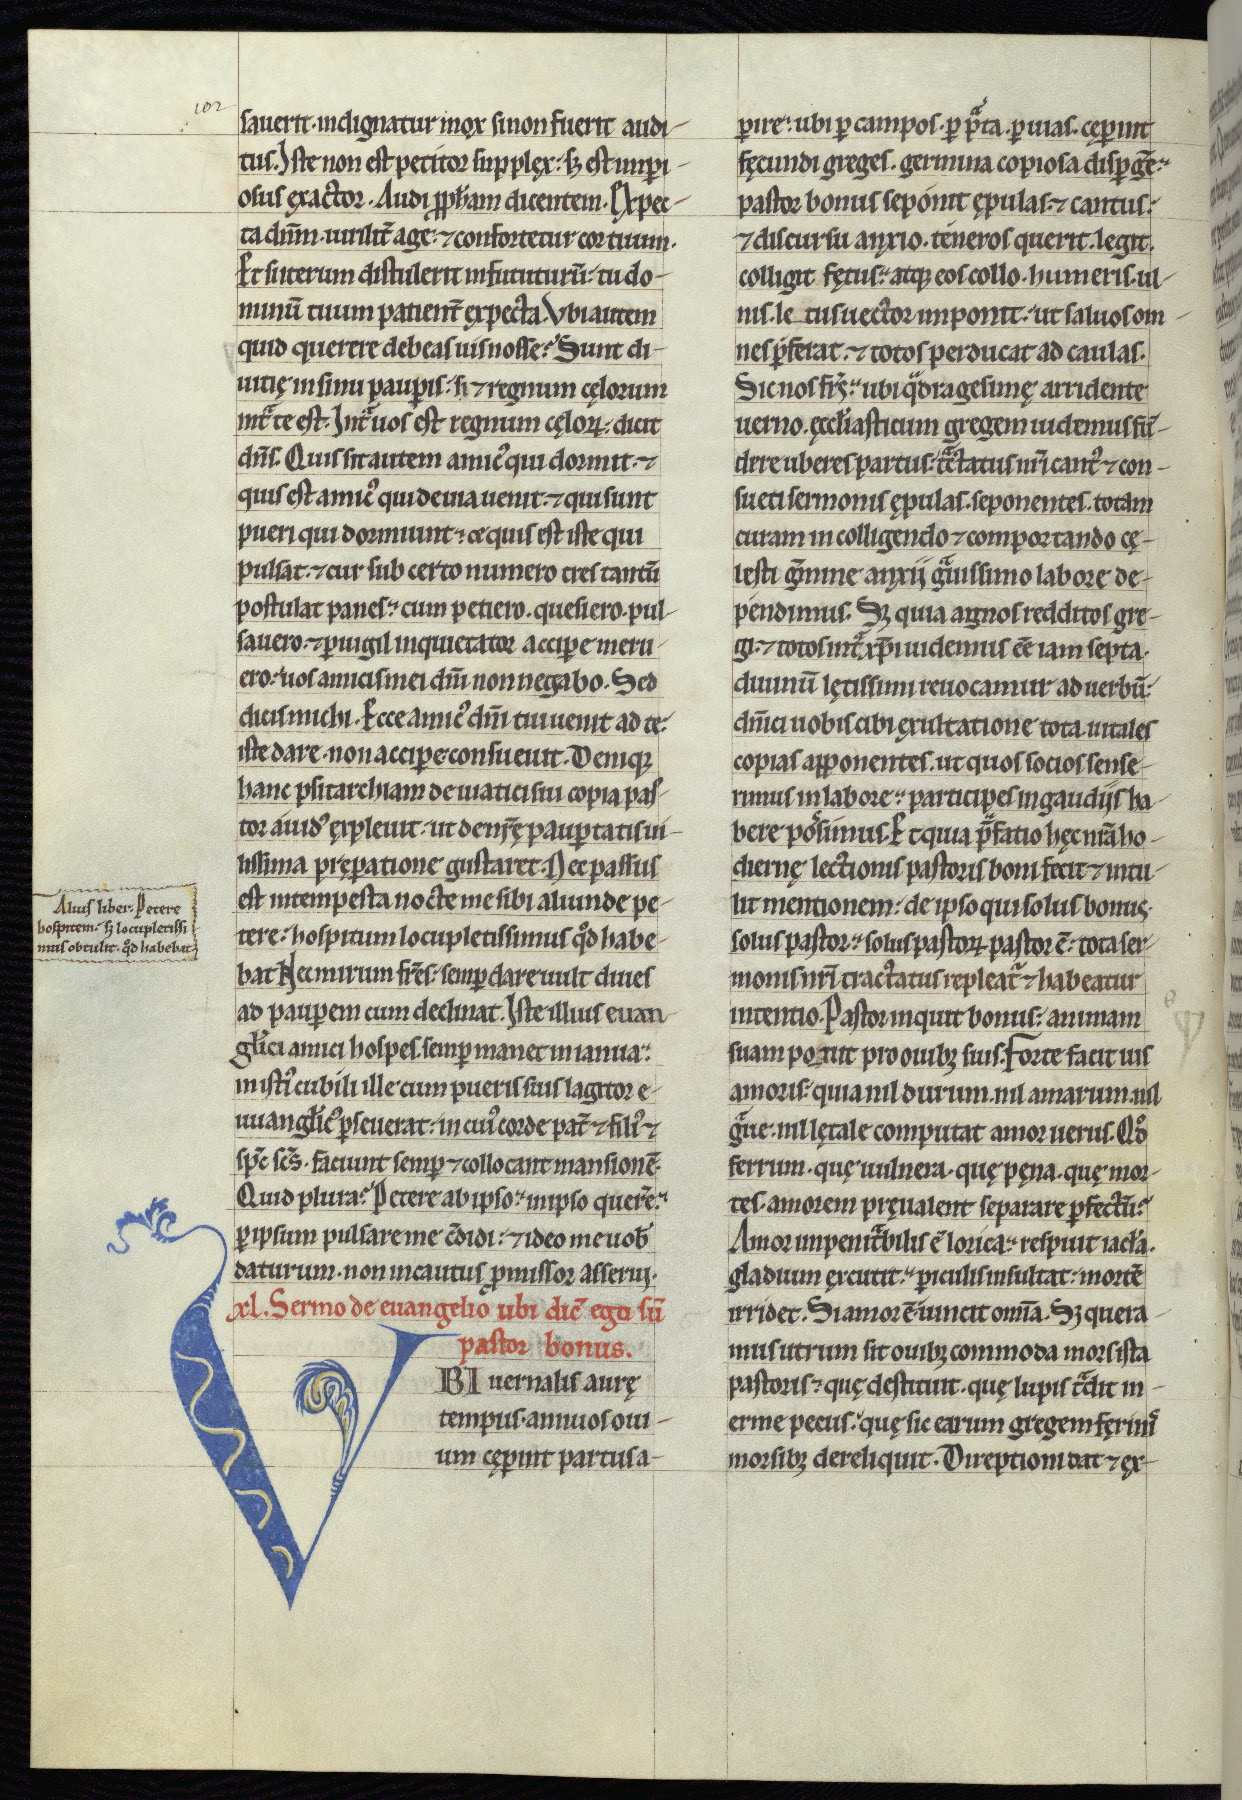 102
sauerit. indignatur mox si non fuerit audi-
tus. Iste non est petitor supplex: sꝫ est imꝑi-
osus exactor. Audi ꝓph̃am dicentem. Expec-
ta dnm̄. uirilit̃ age: ⁊ confortetur cor tuum.
Et si iterum distulerit in fututurū: tu do-
minū tuum patient̃ expecta. Vbi autem
quid querere debeas uis nosse? Sunt di-
uitię in sinu pauꝑis: si ⁊ regnum cęlorum
int̃ te est. Int̃ uos est regnum cęloꝝ: dicit
dñs. Quis sit autem amicꝰ qui dormit: ⁊
quis est amicꝰ qui de uia uenit: ⁊ qui sunt
pueri qui dormiunt: ce quis est iste qui
pulsat: ⁊ cur sub certo numero tres tantū
postulat panes: cum petiero. quesiero. pul-
sauero. ⁊ ꝑuigil inquietator accipe meru-
ero: uos amicis mei dñi non negabo. Sed
dicis michi. Ecce amicꝰ dñi tui uenit ad te:
iste dare. non acciꝑe consueuit. Deniqꝫ
hanc psitarchiam de uiatici sui copia pas-
tor auidꝰ expleuit. ut densę pauꝑtatis ui-
lissima pręꝑatione gustaret. Nec passus
est intempesta nocte me sibi aliunde pe-
tere: hospitum locupletissimus qd̊ habe-
bat. Nec mirum frēs: semꝑ dare uult diues
ad pauꝑem cum declinat. Iste illius euan-
głici amici hospes. semꝑ manet in ianua:
in istiꝰ cubili ille cum pueris suis lagitor e-
uuangłicꝰ ꝑseuerat: in cuiꝰ corde pat̃ ⁊ filiꝰ ⁊
sp̄c sc̄s. faciunt semꝑ ⁊ collocant mansionē.
Quid plura? Petere ab ipso: in ipso querē:
ꝑ ipsum pulsare me c̄didi: ⁊ ideo me uob̄
daturum. non incautus ꝓmissor asserui.
xl. Sermo de euangelio ubi dic̄ ego sū
pastor bonus.
VBI uernalis aurę
tempus. annuos oui-
um cęꝑint partus a-
Alius liber. Petere
hospitem: sꝫ locupletissi
mus obtulit. qd̊ habebat.
ꝑire: ubi ꝑ campos. ꝑ pᵃta. ꝑ uias. cęꝑint
fęcundi greges. germina copiosa disꝑgē:
pastor bonus seponit ępulas. ⁊ cantus:
⁊ discursu anxio. teneros querit. legit.
colligit fętus: atqꝫ eos collo. humeris. ul-
nis. le tus uector imponit: ut saluos om
nes p̄ferat. ⁊ totos perducat ad caulas.
Sic nos fr̄s: ubi qᵃdragesimę arridente
uerno. ęccłiasticum gregem uidemus fū-
dere uberes partus: tᵃctatus nr̄i cantꝰ ⁊ con-
sueti sermonis ępulas. seponentes. totam
curam in colligendo ⁊ comportando cę-
lesti g̃mine anxii gᵃuissimo labore de-
pendimus. Sꝫ quia agnos redditos gre-
gi. ⁊ totos intᵃ xp̄i uidemus ēē iam septa.
diuinū lętissimi reuocamur ad uerbū:
dn̄ici uobis cibi exultatione tota uitales
copias apponentes. ut quos socios sense-
rimus in labore: participes in gaudiis ha-
bere possimus. Et quia p̄fatio hęc nr̄a ho-
diernę lectionis pastoris boni fecit ⁊ intu-
lit mentionem: de ipso qui solus bonus.
solus pastor: solus pastoꝝ pastor ē: tota ser-
monis nr̄i tractatus repleatᵉ ⁊ habeatur
intentio. Pastor inquit bonus: animam
suam ponit pro ouibꝫ suis. Forte facit uis
amoris: quia nil durum. nil amarum. nil
gᵃue. nil lętale computat amor uerus. Qd̊
ferrum. quę uulnera. quę pęna. quę mor-
tes. amorem pręualent separare ꝑfectū?
Amor impenitᵃbilis ē lorica: respuit iacła.
gladium excutit: ꝑiculis insultat: mortē
irridet. Si amor ē. uincit omīa. Sꝫ quera-
mus utrum sit ouibꝫ commoda mors ista
pastoris: quę destituit. quę lupis tᵃdit in-
erme pecus: quę sic earum gregem ferinis
morsibꝫ dereliquit. Direptioni dat ⁊ ex-